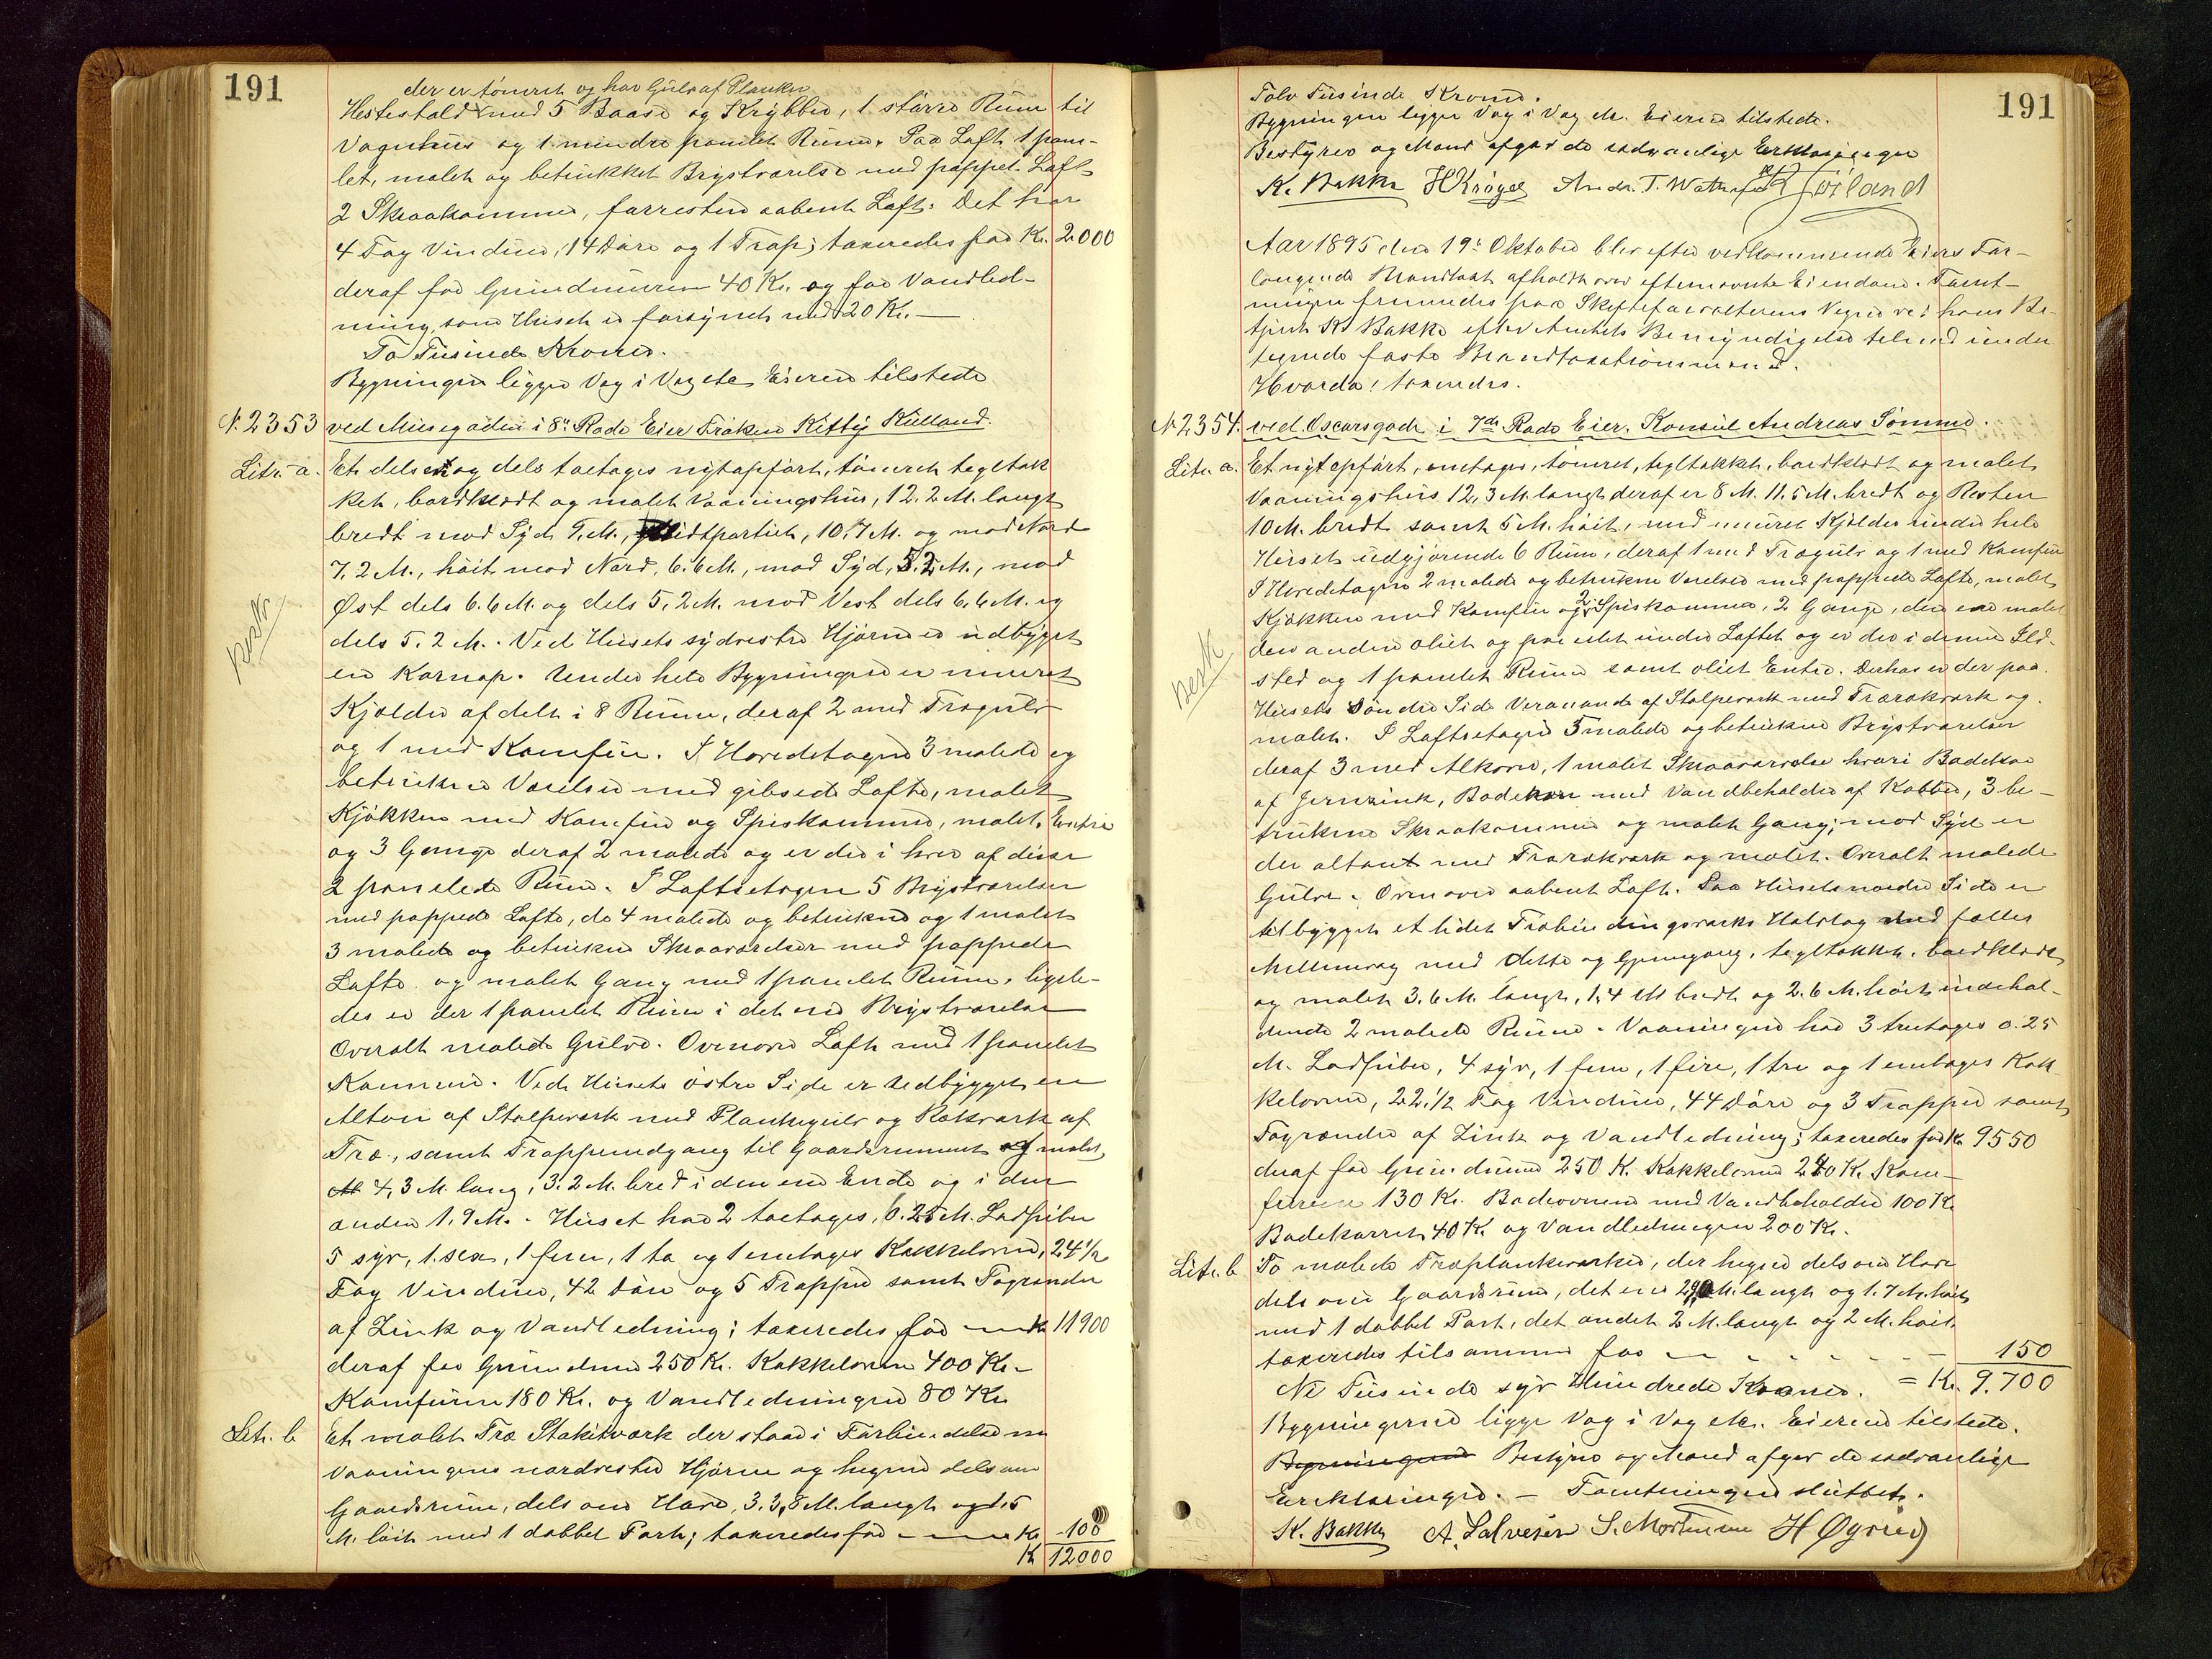 191
der er tømret og har Gulv af Planker
Hestestald med 5 Baase og Krybber, 1 større Rum til
Vognhus og 1 mindre panelet Rum. Paa Loft 1 pane-
let, malet og betrukket Brystværelse med pappet Loft
2 Skraakammere, forresten aabent Loft. Det har
4 Fag Vinduer, 14 Døre og 1 Trap; taxeredes for Kr. 2000
deraf for Grundmuren 40 Kr. og for Vandled-
ning, som Huset er forsynet med 20 Kr. —
To Tusinde Kroner.
Bygningen ligger Væg i Væg etc Eieren tilstede
N. 2353 ved Musegaden i 8de Rode Eier Frøken Kitty Kielland.
Litr. a. Et dels en og dels toetages nytopført, tømret tegltæk
ket, bordklædt og malet Vaaningshus, 12.2 M. langt
bredt mod Syd 9. M., Midtpartiet, 10.7 M. og mod Nord
7.2 M., høit mod Nord, 6.6 M., mod Syd, 5.2 M., mod
Øst dels 6.6 M. og dels 5.2 M. mod Vest dels 6.6 M. og
dels 5.2 M. Ved Husets sydvestre Hjørne er udbygget
en Karnap. Under hele Bygningen er muret
Kjælder afdelt i 8 Rum, deraf 2 med Trægulv
og 1 med Komfur. I Hovedetagen 3 malede og
betrukne Værelser med gibsede Lofte, malet
Kjøkken med Komfur og Spiskammer, malet, Entre
og 3 Gange deraf 2 malede og er der i hver af disse
2 panelede Rum. I Loftsetagen 5 Brystværelser
med pappede Lofte, de 4 malede og betrukne og 1 malet
3 malede og betrukne Skraaværelser med pappede
Lofte og malet Gang med 1 panelet Rum, ligele-
des er der 1 panelet Rum i det ene Brystværelse
Overalt malede Gulve. Ovenover Loft med 1 panelet
Kammer. Ved Husets østre Side er udbygget en
Altan af Stolpeværk med Plankegulv og Rækværk af
Træ, samt Trappenedgang til Gaardsrummet og malet
4,3 M. lang, 3.2 M. bred i den ene Ende og i den
anden 1,9 M. Huset har 2 toetages, 0.25 M. Ladpiber
5 syv, 1 sex, 1 fem, 1 to og 1 enetages Kakkelovne, 24 1/2
Fag Vinduer, 42 Døre og 5 Trapper samt Tagrender
af Zink og Vandledning; taxeredes for — Kr 11900
deraf for Grundmur 250 Kr. Kakkelovne 400 Kr. -
Komfurene 180 Kr. og Vandledningen 80 Kr.
Litr. b Et malet Træ Stakitværk der staar i Forbindelse m
Vaaningens nordvestre Hjørne og hegner dels om
Gaardsrum, dels om Have, 3.3,8 M. langt og 1.5
M. høit med 1 dobbel Port; taxeredes for — Kr - 100
Kr 12000
191
Tolv Tusinde Kroner.
Bygningen ligger Væg i Væg etc. Eieren tilstede.
Bestyrer og Mænd afgav de sædvanlige Erklæringer
K. Bakke H Krøger Andr. T. Wathne Høiland
Aar 1895 den 19de Oktober blev efter vedkommende Eiers For-
langende Brandtaxt afholdt over efternævnte Eiendom. Taxt-
ningen fremmedes paa Skifteforvalterens Vegne ved hans Be-
tjent K. Bakke efter Amtets Bemyndigelse tilmed under
tegnede faste Brandtaxationsmænd.
Hvorda: taxeredes.
N 2354. ved Oscarsgade i 7de Rode Eier, Konsul Andreas Sømme.
Litr. a. Et nytopført, enetages, tømret, tegltækket, bordklædt og malet
Vaaningshus 12,3 M. langt deraf er 8 M. 11.5 M. bredt og Resten
10 M. bredt samt 5 M. høit, med muret Kjælder under hele
Huset udgjørende 6 Rum, deraf 1 med Trægulv og 1 med Komfur
I Hovedetagen 2 malede og betrukne Værelser med pappede Lofte, malet
Kjøkken med Komfur og 2 Spiskammer, 2 Gange, den ene malet
den anden oliet og panelet under Loftet og er der i denne Ild-
sted og 1 panelet Rum samt oliet Entre. Derhos er der paa
Husets Søndre Side Veranda af Stolpeværk med Trærækværk og
malet. I Loftsetagen 5 malede og betrukne Brystværelser
deraf 3 med Alkove, 1 malet Skraaværelse hvori Badekar
af Jernzink, Badeovn med Vandbeholder af Kobber, 3 be-
trukne Skraakammere og malet Gang; mod Syd er
der altan med Trærækværk og malet. Overalt malede
Gulve. Ovenover aabent Loft. Paa Husets nordre Side er
tilbygget et lidet Træbindingsværks Halvtag med fælles
Mellemvæg med dette og Gjennemgang, tegltækket, bordklædt
og malet 3.6 M. langt, 1,4 M bredt og 2.6 M. høit, indehol-
dende 2 malede Rum. Vaaningen har 3 treetages 0.25
M. Ladpiber, 4 syv, 1 fem, 1 fire, 1 tre og 1 enetages Kak
kelovne, 22.1/2 Fag Vinduer, 44 Døre og 3 Trapper samt
Tagrender af Zink og Vandledning; taxeredes for Kr 9550
deraf for Grundmur 250 K. Kakkelovne 240 Kr. Kom-
furene 130 Kr. Badeovnen med Vandbeholder 100 Kr
Badekarret 40 Kr. og Vandledningen 200 Kr.
Litr. b To malede Træplankeværker, der hegner dels om Have
dels om Gaardsrum, det ene M. langt og 1.7 M. høit
med 1 dobbel Port, det andet 2 M. langt og 2 M. høit.
taxeredes tilsammen for — 150
Ni Tusinde syv Hundrede Kroner. = Kr. 9.700
Bygningerne ligger Væg i Væg etc. Eieren tilstede.
Bygningerne Bestyrer og Mænd afgav de sædvanlige
Erklæringer. — Forretningen sluttet.
K. Bakke A. Salvesen S. Mortensen H Øgreid